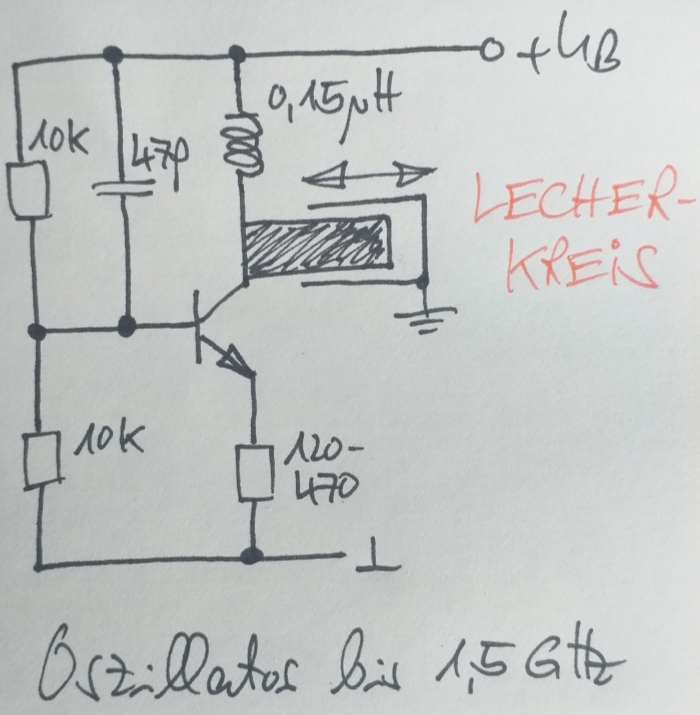 +UB
0,15µH
10k
47p
LECHER-
KREIS
10k
120-
470
⊥
Oszillator bis 1,5 GHz